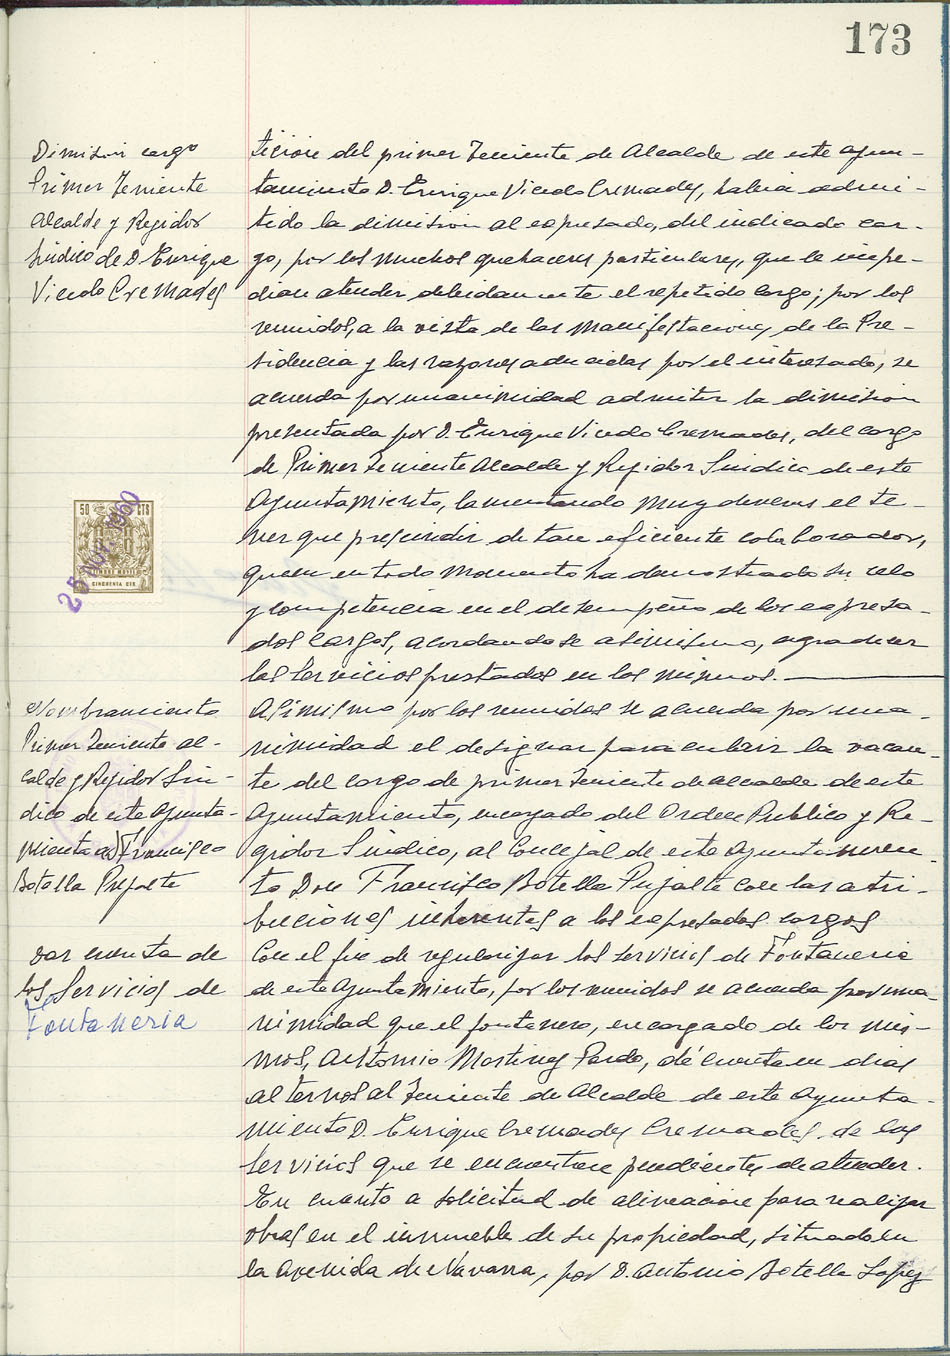 173
Dimisión cargo
Primer Teniente
Alcalde y Regidor
Síndico de D. Enrique
Vicedo Cremades
tición del primer Teniente de Alcalde de este Ayun-
tamiento D. Enrique Vicedo Cremades, había admi-
tido la dimisión al expresado, del indicado car-
go, por los muchos quehaceres particulares, que le impe-
dían atender debidamente el repetido cargo; por los
reunidos, a la vista de las manifestaciones de la Pre-
sidencia y las razones aducidas por el interesado, se
acuerda por unanimidad admitir la dimisión
presentada por D. Enrique Vicedo Cremades, del cargo
de Primer Teniente Alcalde y Regidor Síndico de este
Ayuntamiento, lamentando muy deveras el te-
ner que prescindir de tan eficiente colaborador,
quien en todo momento ha demostrado su celo
y competencia en el desempeño de los expresa-
dos cargos, acordandose asimismo, agradecer
los servicios prestados en los mismos.
50 CTS
TIMBRE MOVIL
CINCUENTA CTS
25 NOV. 1960
Nombramiento
Primer Teniente al-
calde y Regidor Sín-
dico de este Ayunta-
miento a D. Francisco
Botella Pujalte
Asimismo por los reunidos se acuerda por una-
nimidad el designar para cubrir la vacan-
te del cargo de primer Teniente de Alcalde de este
Ayuntamiento, encargado del Orden Publico y Re-
gidor Síndico, al Concejal de este Ayuntamien-
to Don Francisco Botella Pujalte con las atri-
buciones inherentes a los expresados cargos
Dar cuenta de
los Servicios de
Fontaneria
Con el fin de regularizar los servicios de Fontaneria
de este Ayuntamiento, por los reunidos se acuerda por una-
nimidad que el fontanero, encargado de los mis-
mos, Antonio Martinez Pardo, dé cuenta en dias
alternos al Teniente de Alcalde de este Ayunta-
miento D. Enrique Cremades Cremades, de los
servicios que se encuentran pendientes de atender.
En cuanto a solicitud de alineacion para realizar
obras en el inmueble de su propiedad, situado en
la Avenida de Navarra, por D. Antonio Botella Lopez